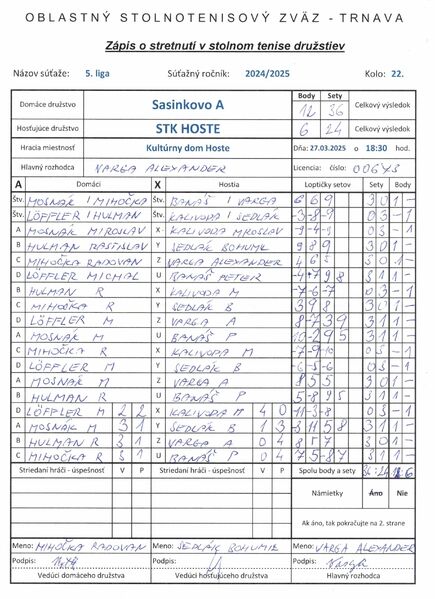 OBLASTNÝ STOLNOTENISOVÝ ZVÄZ - TRNAVA
Zápis o stretnutí v stolnom tenise družstiev
Názov súťaže: 5. liga Súťažný ročník: 2024/2025 Kolo: 22.
Body Sety
Domáce družstvo Sasinkovo A 12 36 Celkový výsledok
Hosťujúce družstvo STK HOSTE 6 24 Celkový výsledok
Hracia miestnosť Kultúrny dom Hoste Dňa: 27.03.2025 o 18:30 hod.
Hlavný rozhodca VARGA ALEXANDER Licencia: číslo:
A Domáci X Hostia Loptičky setov Sety Body
Štv. MOSNÁK / MIHOČKA Štv. BANÁŠ / VARGA 6 6 9 3 0 1 -
Štv. LÖFFLER / HULMAN Štv. KALIVODA / SEDLÁK -3 -8 -9 0 3 - 1
A MOSNÁK MIROSLAV X KALIVODA MIROSLAV -9 -4 0 3 - 1
B HULMAN RASTISLAV Y SEDLÁK BOHUMIL 9 8 9 3 0 1 -
C MIHOČKA RADOVAN Z VARGA ALEXANDER 4 6 5 3 0 1 -
D LÖFFLER MICHAL U BANÁŠ PETER -4 7 9 8 3 1 1 -
B HULMAN R X KALIVODA M -7 -6 -7 0 3 - 1
C MIHOČKA R Y SEDLÁK B 3 9 8 3 0 1 -
D LÖFFLER M Z VARGA A 8 -7 3 9 3 1 1 -
A MOSNÁK M U BANÁŠ P 10 -2 9 5 3 1 1 -
C MIHOČKA R X KALIVODA M -7 -9 -10 0 3 - 1
D LÖFFLER M Y SEDLÁK B -6 -5 -6 0 3 - 1
A MOSNÁK M Z VARGA A 8 5 5 3 0 1 -
B HULMAN R U BANÁŠ P 5 -8 9 5 3 1 1 -
D LÖFFLER M 2 2 X KALIVODA M 4 0 -11 -3 -8 0 3 - 1
A MOSNÁK M 3 1 Y SEDLÁK B 1 3 3 1 1 -
B HULMAN R 3 1 Z VARGA A 0 4 8 5 7 3 0 1 -
C MIHOČKA R 3 1 U BANÁŠ P 0 4 7 5 -8 7 3 1 1 -
Striedaní hráči - úspešnosť V P Striedaní hráči - úspešnosť V P Spolu body a sety 36:24 12:6
Námietky Áno Nie
Ak áno, tak pokračujte na 2. strane
Meno: MIHOČKA RADOVAN Meno: SEDLÁK BOHUMIL Meno: VARGA ALEXANDER
Podpis: Podpis: Podpis: Varga
Vedúci domáceho družstva Vedúci hosťujúceho družstva Hlavný rozhodca